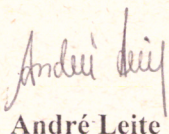 André Leite
André Leite